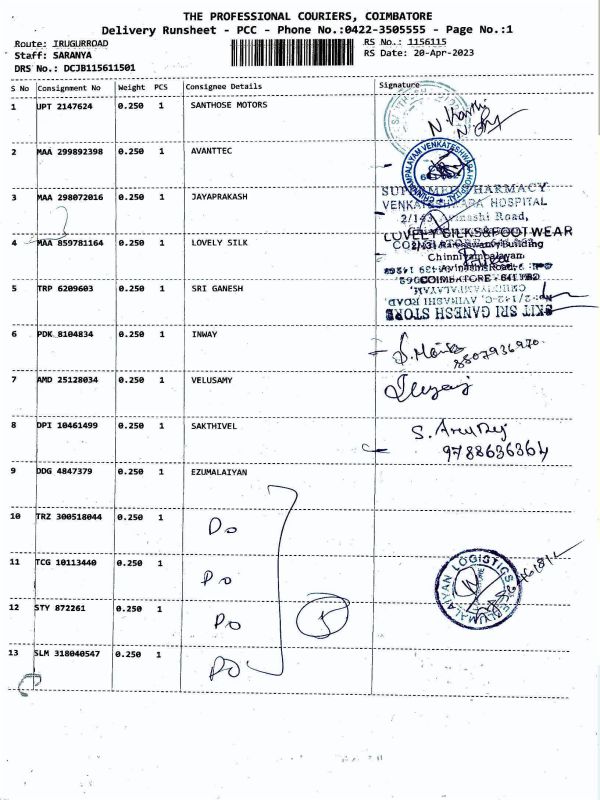 THE PROFESSIONAL COURIERS, COIMBATORE
Delivery Runsheet - PCC - Phone No.:0422-3505555 - Page No.:1
Route: IRUGURROAD RS No.: 1156115
Staff: SARANYA RS Date: 20-Apr-2023
DRS No.: DCJB115611501
S No Consignment No Weight PCS Consignee Details Signature
1 UPT 2147624 0.250 1 SANTHOSE MOTORS
2 MAA 299892398 0.250 1 AVANTTEC
CHINNIYAMPALAYAM VENKATESHWARA HOSPITAL
3 MAA 298072016 0.250 1 JAYAPRAKASH
PHARMACY
VENKATESHWARA HOSPITAL
2/143, Avinashi Road,
4 MAA 859781164 0.250 1 LOVELY SILK
LOVELY SILKS&FOOTWEAR
Building
Chinniyampalayam
Avinashi Road,
COIMBATORE - 641
5 TRP 6209603 0.250 1 SRI GANESH
CHINNIYAMPALAYAM,
No: 2/142-C, AVINASHI ROAD,
SRI GANESH STORE
6 PDK 8104834 0.250 1 INWAY
8807936970
7 AMD 25128034 0.250 1 VELUSAMY
8 DPI 10461499 0.250 1 SAKTHIVEL
9788636364
9 DDG 4847379 0.250 1 EZUMALAIYAN
10 TRZ 300518044 0.250 1 Do
11 TCG 10113440 0.250 1 Do
EZUMALAIYAN LOGISTICS
12 STY 872261 0.250 1 Do
5
13 SLM 318040547 0.250 1 Do